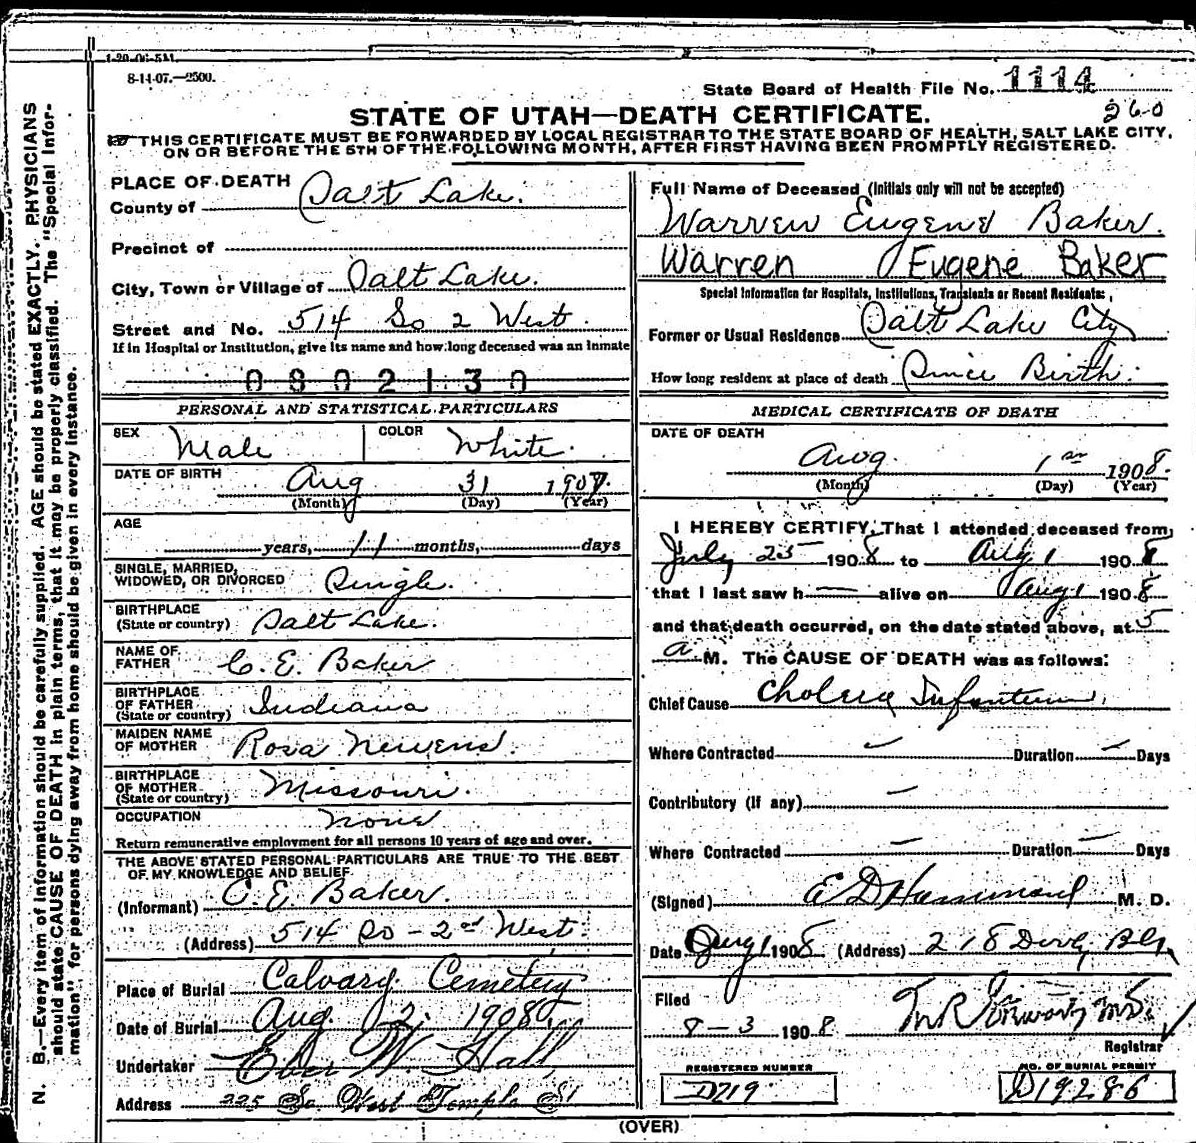 1-20-06-5M.
8-14-07.—2500.
State Board of Health File No. 1114
260
STATE OF UTAH—DEATH CERTIFICATE.
THIS CERTIFICATE MUST BE FORWARDED BY LOCAL REGISTRAR TO THE STATE BOARD OF HEALTH, SALT LAKE CITY,
ON OR BEFORE THE 5TH OF THE FOLLOWING MONTH, AFTER FIRST HAVING BEEN PROMPTLY REGISTERED.
N. B.—Every item of information should be carefully supplied. AGE should be stated EXACTLY. PHYSICIANS
should state CAUSE OF DEATH in plain terms, that it may be properly classified. The "Special Infor-
mation" for persons dying away from home should be given in every instance.
PLACE OF DEATH
County of Salt Lake.
Precinct of
City, Town or Village of Salt Lake.
Street and No. 514 So 2 West.
If in Hospital or Institution, give its name and how long deceased was an inmate
0802130
PERSONAL AND STATISTICAL PARTICULARS
SEX Male COLOR White.
DATE OF BIRTH Aug 31 1907.
(Month) (Day) (Year)
AGE
years, 11 months, days
SINGLE, MARRIED,
WIDOWED, OR DIVORCED Single.
BIRTHPLACE
(State or country) Salt Lake.
NAME OF
FATHER C. E. Baker
BIRTHPLACE
OF FATHER
(State or country) Indiana
MAIDEN NAME
OF MOTHER Rosa Newens.
BIRTHPLACE
OF MOTHER
(State or country) Missouri.
OCCUPATION None
Return remunerative employment for all persons 10 years of age and over.
THE ABOVE STATED PERSONAL PARTICULARS ARE TRUE TO THE BEST
OF MY KNOWLEDGE AND BELIEF
(Informant) C. E. Baker.
(Address) 514 So - 2nd West.
Place of Burial Calvary Cemetery
Date of Burial Aug 2, 1908
Undertaker Eber W. Hall
Address 225 So West Temple St
Full Name of Deceased (Initials only will not be accepted)
Warren Eugene Baker.
Warren Eugene Baker
Special Information for Hospitals, Institutions, Transients or Recent Residents:
Former or Usual Residence Salt Lake City
How long resident at place of death Since Birth.
MEDICAL CERTIFICATE OF DEATH
DATE OF DEATH
Aug. 1 1908.
(Month) (Day) (Year)
I HEREBY CERTIFY, That I attended deceased from
July 25 1908 to Aug 1 1908
that I last saw h alive on Aug 1 1908
and that death occurred, on the date stated above, at 5
a M. The CAUSE OF DEATH was as follows:
Chief Cause Cholera Infantum.
Where Contracted Duration Days
Contributory (if any)
Where Contracted Duration Days
(Signed) E D Hammond M. D.
Date Aug 1 1908 (Address) 218
Filed
8-3 1908
Registrar
REGISTERED NUMBER
D719
NO. OF BURIAL PERMIT
D19286
(OVER)